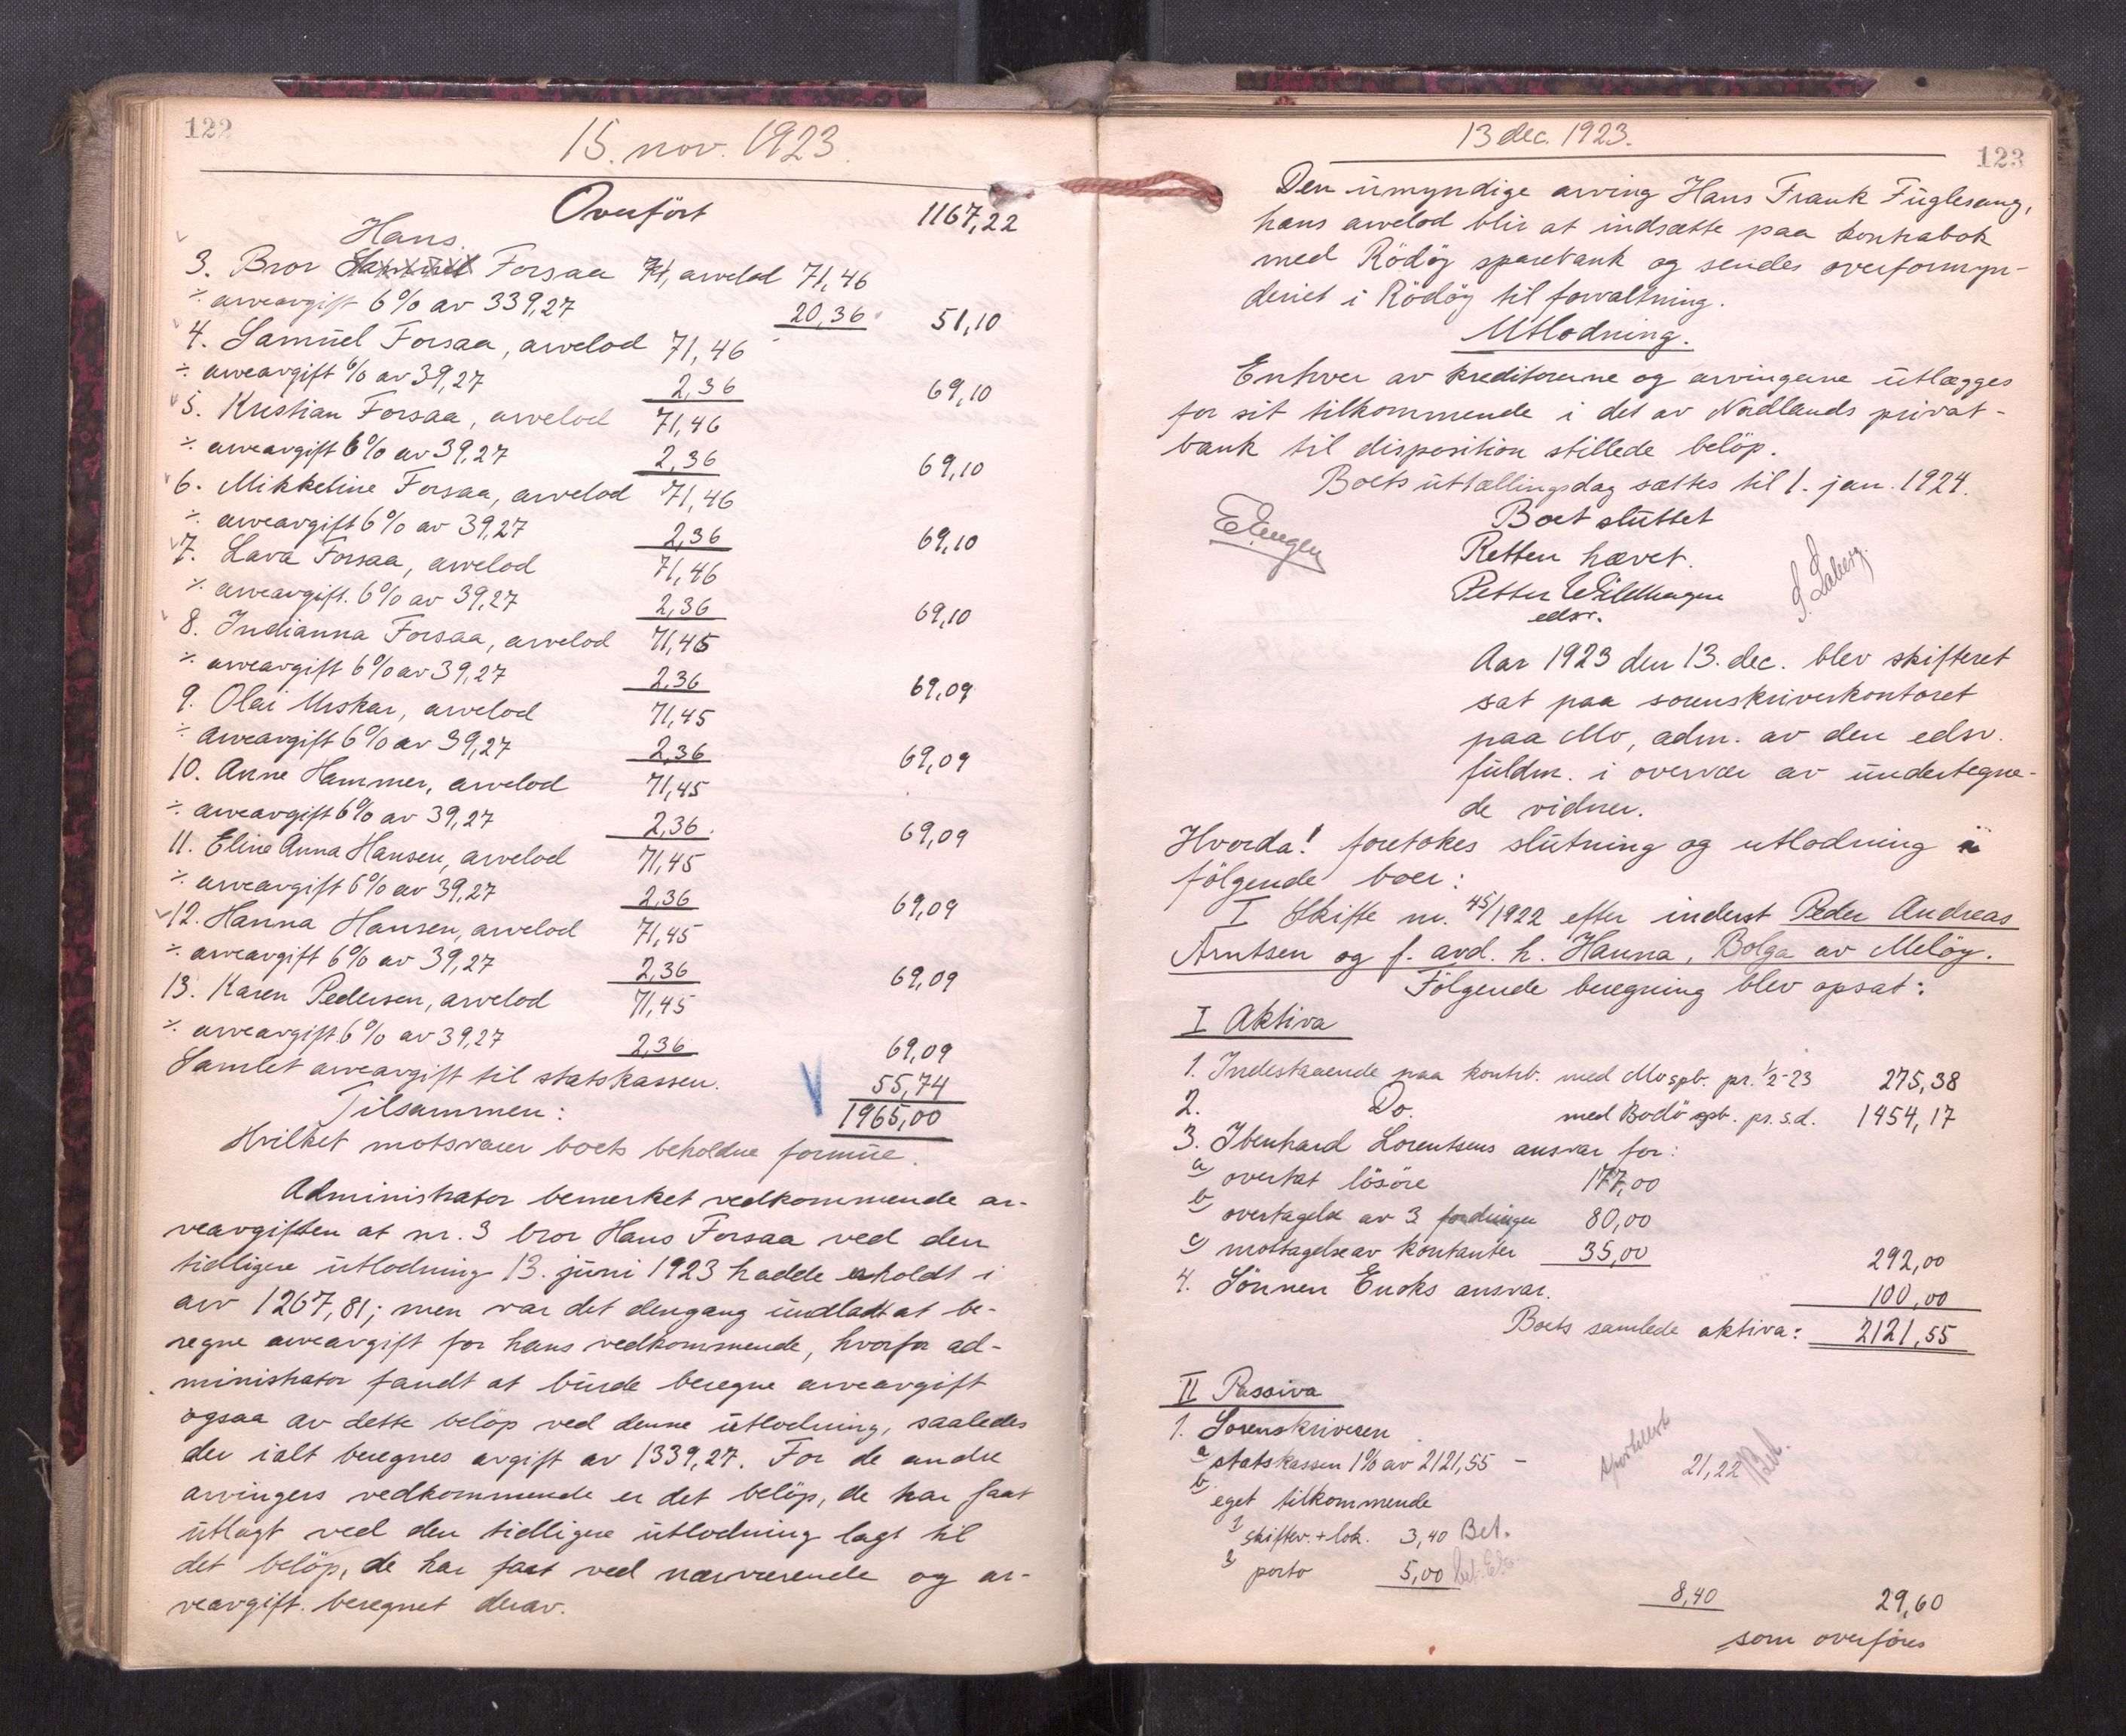 122
15. nov. 1923.
Overført 1167,22
Hans.
3. Bror Samuel Forsaa 71, arvelod 71,46
÷ arveavgift 6% av 339,27 20,36 51,10
4. Samuel Forsaa, arvelod 71,46
÷ arveavgift 6% av 39,27 2,36 69,10
5. Kristian Forsaa, arvelod 71,46
÷ arveavgift 6% av 39,27 2,36 69,10
6. Mikkeline Forsaa, arvelod 71,46
÷ arveavgift 6% av 39,27 2,36 69,10
7. Lava Forsaa, arvelod 71,46
÷ arveavgift. 6% av 39,27 2,36 69,10
8. Indianna Forsaa, arvelod 71,45
÷ arveavgift 6% av 39,27 2,36 69,09
9. Olai Urskar, arvelod 71,45
÷ arveavgift 6% av 39,27 2,36 69,09
10. Anne Hammer, arvelod 71,45
÷ arveavgift 6% av 39,27 2,36 69,09
11. Eline Anna Hansen, arvelod 71,45
÷ arveavgift 6% av 39,27 2,36 69,09
12. Hanna Hansen, arvelod 71,45
÷ arveavgift 6% av 39,27 2,36 69,09
13. Karen Pedersen, arvelod 71,45
÷ arveavgift 6% av 39,27 2,36 69,09
Samlet arveavgift til statskassen. 55,74
Tilsammen: 1965,00
Hvilket motsvarer boets beholdne formue.
Administrator bemerket vedkommende ar-
veavgiften at nr. 3 bror Hans Forsaa ved den
tidligere utlodning 13. juni 1923 hadde erholdt i
arv 1267,81; men var det dengang undladt at be-
regne arveavgift for hans vedkommende, hvorfor ad-
ministrator fandt at burde beregne arveavgift
ogsaa av dette beløp ved denne utlodning, saaledes
der ialt beregnes avgift av 1339,27. For de andre
arvingers vedkommende er det beløp, de har faat
utlagt ved den tidligere utlodning lagt til
det beløp, de har faat ved nærværende og ar-
veavgift. beregnet derav.
13 dec. 1923.
123
Den umyndige arving Hans Frank Fuglesang,
hans arvelod blir at indsætte paa kontrabok
med Rödöy sparebank og sendes overformyn-
deriet i Rödöy til forvaltning.
Utlodning.
Enhver av kreditorerne og arvingerne utlægges
for sit tilkommende i det av Nordlands privat-
bank til disposition stillede beløp.
Boets uttællingsdag sættes til 1. jan. 1924.
Boet sluttet
Retten hævet.
E Engen
Petter Wildhagen
edsv.
S. Laberg.
Aar 1923 den 13. dec. blev skifteret
sat paa sorenskriverkontoret
paa Mo, adm. av den edsv.
fuldm. i overvær av undertegne-
de vidner.
Hvorda! foretokes slutning og utlodning i
følgende boer:
I Skifte nr. 45/1922 efter inderst Peder Andreas
Arntsen og f. avd. h. Hanna, Bolga av Meløy.
Følgende beregning blev opsat:
I Aktiva
1. Indestaaende paa kontrb. med Mo spb. pr. 1/2-23 275,38
2. Do. med Bodø spb. pr. s.d. 1454,17
3. Ibenhard Lorentsens ansvar for:
a overtat løsøre 177,00
b overtagelse av 3 fordringer 80,00
c mottagelse av kontanter 35,00 292,00
4. Sønnen Enoks ansvar. 100,00
Boets samlede aktiva: 2121,55
II Passiva
1. Sorenskriveren
a statskassen 1% av 2121,55 - 21,22 Bet.
b eget tilkommende
1 skiftev. + lok. 3,40 Bet.
2 porto 5,00 bet.
8,40 29,60
som overføres